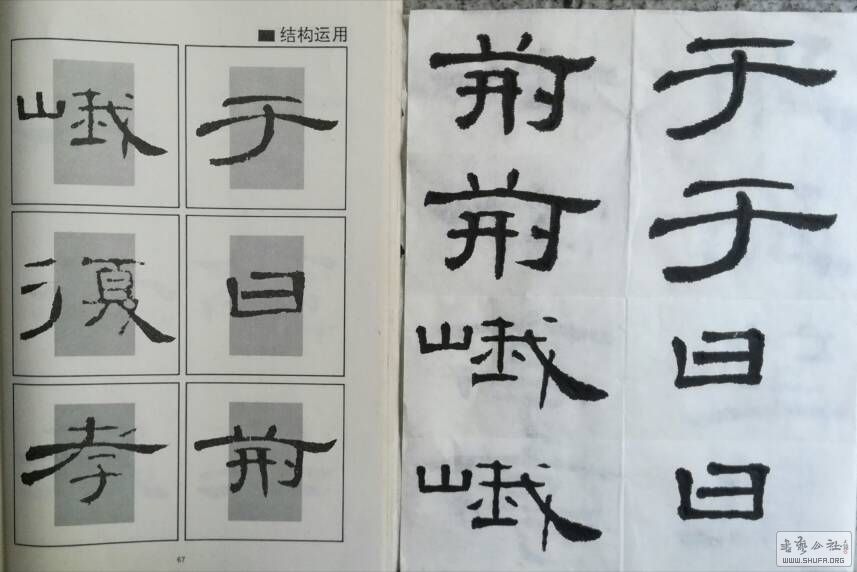 结构运用
于曰荆
峨須孝
67
于于曰曰
荆荆峨峨
书艺公社
WWW.SHUFA.ORG